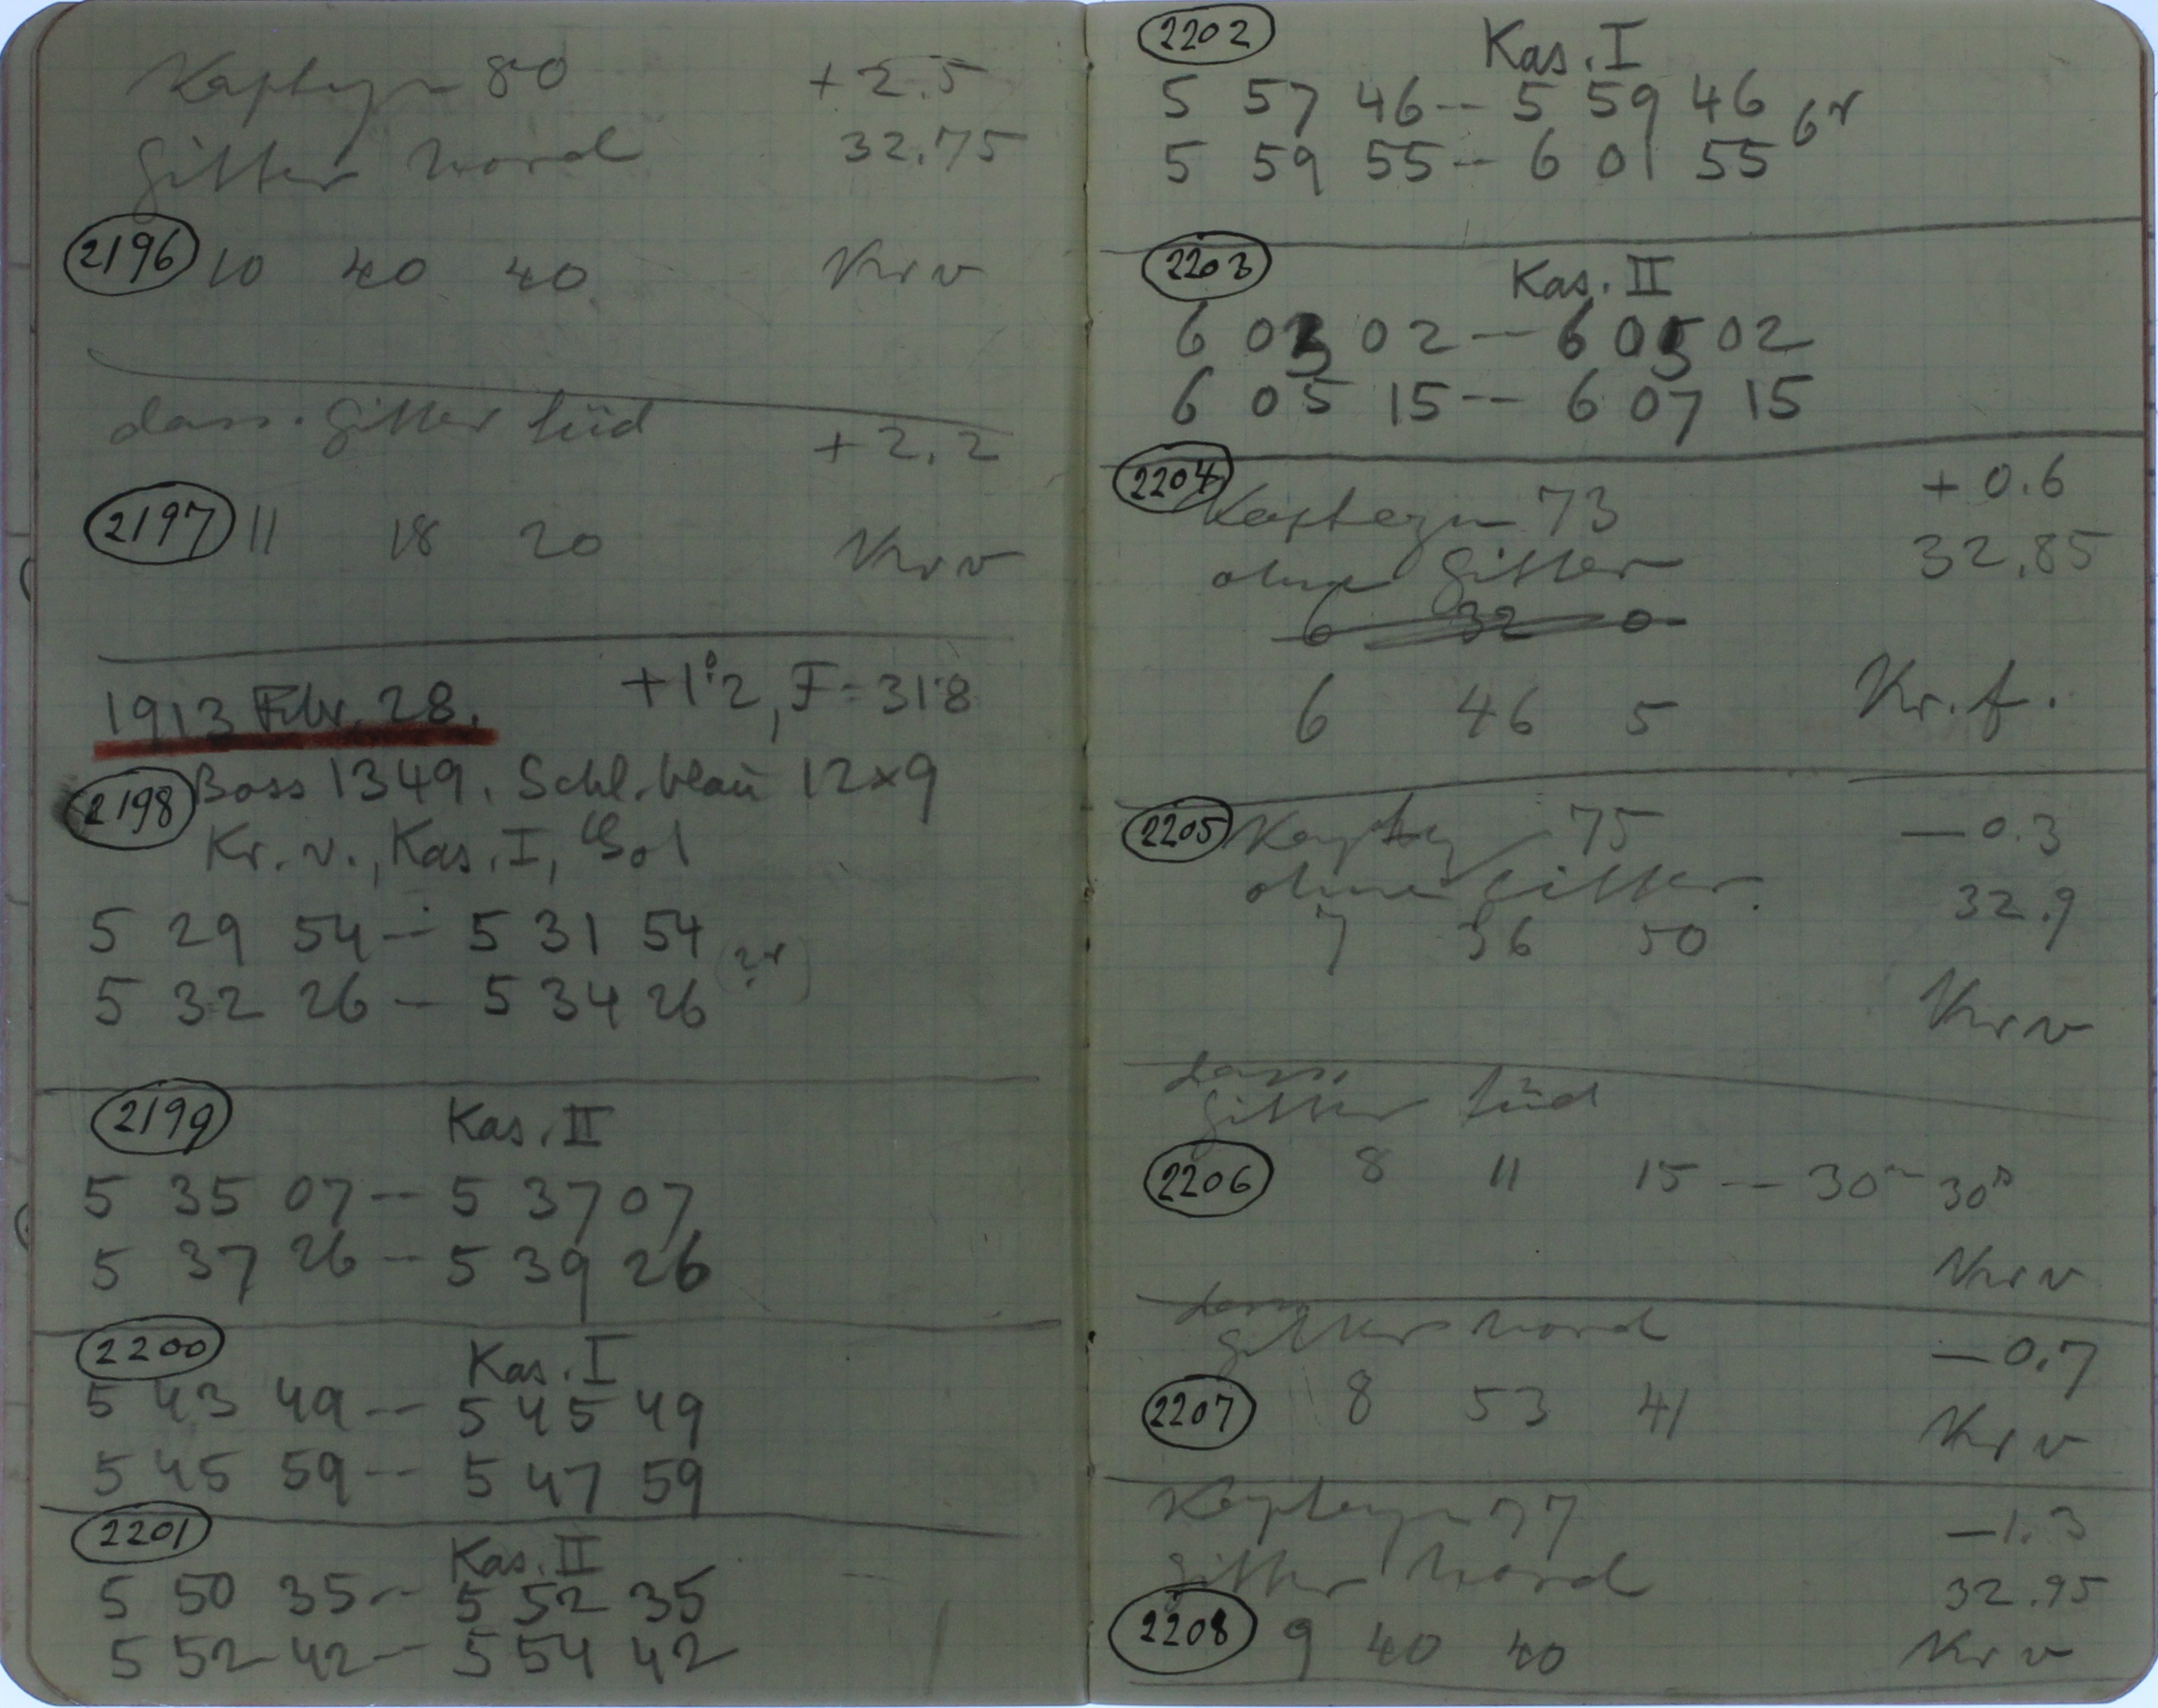 Kapteyn 80 +2.5
Gitter Nord 32.75
2196 10 40 40 Kr v
dass. Gitter Süd +2.2
2197 11 18 20 Kr v
1913 Febr. 28. +1°2, F=31.8
2198 Boss 1349. Schl. blau 12×9
Kr. v., Kas. I,
5 29 54 -- 5 31 54
5 32 26 -- 5 34 26
2199 Kas. II
5 35 07 -- 5 37 07
5 37 26 -- 5 39 26
2200 Kas. I
5 43 49 -- 5 45 49
5 45 59 -- 5 47 59
2201 Kas. II
5 50 35 -- 5 52 35
5 52 42 -- 5 54 42
2202 Kas. I
5 57 46 -- 5 59 46
5 59 55 -- 6 01 55
2203 Kas. II
6 03 02 -- 6 05 02
6 05 15 -- 6 07 15
2204 Kapteyn 73 +0.6
ohne Gitter 32.85
6 32 0
6 46 5 Kr. f.
2205 Kapteyn 75 -0.3
ohne Gitter. 32.9
7 36 50
Kr v
dass.
Gitter Süd
2206 8 11 15 -- 30m 30s
Kr v
dass.
Gitter Nord -0.7
2207 8 53 41 Kr v
Kapteyn 77 -1.3
Gitter Nord 32.95
2208 9 40 40 Kr v